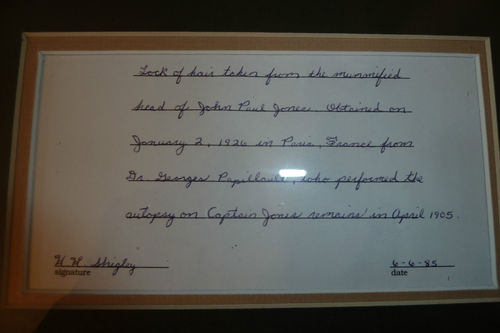 Lock of hair taken from the mummified
head of John Paul Jones. Obtained on
January 2, 1926 in Paris, France from
Dr. Georges Papillault, who performed the
autopsy on Captain Jones remains in April 1905.
H. H. Shigley 6-6-85
signature date